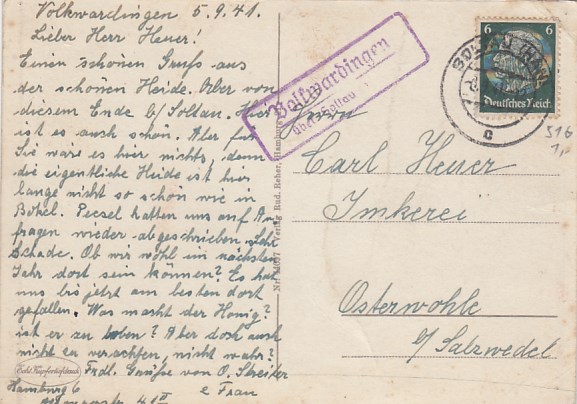 Volkwardingen 5.9.41.
Lieber Herr Heuer!
Einen schönen Gruß aus
der schönen Heide. Aber von
diesem Ende b/ Soltau. Hier
ist es auch schön. Aber für
Sie wäre es hier nichts, denn
die eigentliche Heide ist hier
lange nicht so schön wie in
Bökel. hatten uns auf An-
fragen wieder abgeschrieben. Sehr
Schade. Ob wir wohl im nächsten
Jahr dort sein können? Es hat
uns bis jetzt am besten dort
gefallen. Was macht der Honig?
ist er zu loben? Aber doch auch
nicht zu verachten, nicht wahr?
Frdl. Grüße von O. Streiber
e Frau
Hamburg 6
Echt Kupfertiefdruck
Nr. Verlag Rud. Reher, Hamburg
Volkwardingen
über Soltau
SOLTAU (HAN)
c
6 6
Deutsches Reich
516
Herrn
Carl Heuer
Imkerei
Osterwohle
b/ Salzwedel